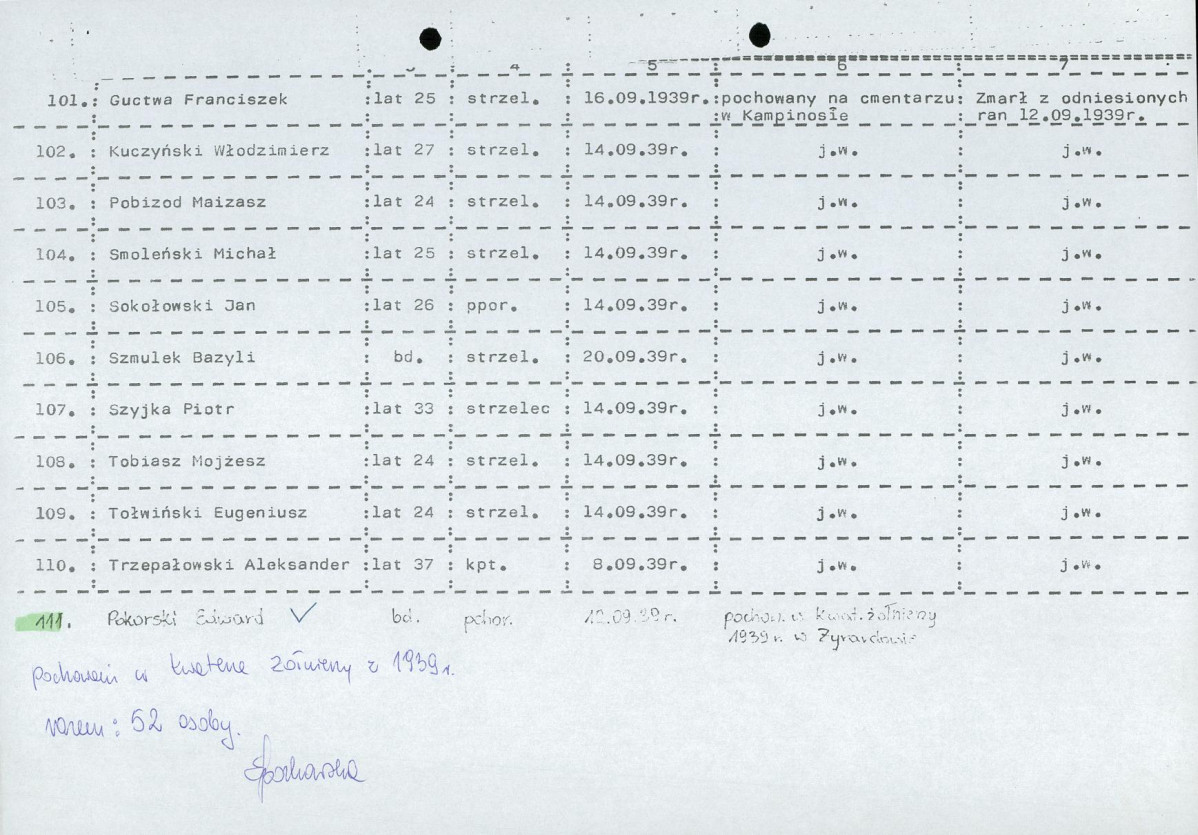 4 5 6 7
101. Guctwa Franciszek lat 25 strzel. 16.09.1939r. pochowany na cmentarzu Zmarł z odniesionych
w Kampinosie ran 12.09.1939r.
102. Kuczyński Włodzimierz lat 27 strzel. 14.09.39r. j.w. j.w.
103. Pobizod Maizasz lat 24 strzel. 14.09.39r. j.w. j.w.
104. Smoleński Michał lat 25 strzel. 14.09.39r. j.w. j.w.
105. Sokołowski Jan lat 26 ppor. 14.09.39r. j.w. j.w.
106. Szmulek Bazyli bd. strzel. 20.09.39r. j.w. j.w.
107. Szyjka Piotr lat 33 strzelec 14.09.39r. j.w. j.w.
108. Tobiasz Mojżesz lat 24 strzel. 14.09.39r. j.w. j.w.
109. Tołwiński Eugeniusz lat 24 strzel. 14.09.39r. j.w. j.w.
110. Trzepałowski Aleksander lat 37 kpt. 8.09.39r. j.w. j.w.
111. Pokorski Edward bd. pchor. 12.09.39r. pochow. w kwat. żołnierzy
1939r. w Żyrardowie
pochowani w kwaterze żołnierzy z 1939r.
razem: 52 osoby.